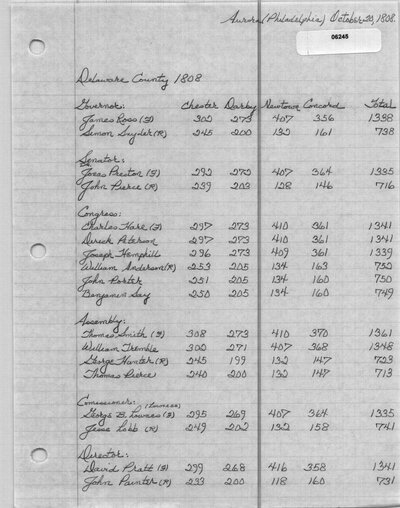 Aurora (Philadelphia) October 20, 1808.
06245
Delaware County 1808
Governor: Chester Darby Newtown Concord Total
James Ross (F) 302 273 407 356 1338
Simon Snyder (R) 245 200 132 161 738
Senator:
Jonas Preston (F) 292 272 407 364 1335
John Pierce (R) 239 203 128 146 716
Congress:
Charles Hare (F) 297 273 410 361 1341
Derick Peterson 297 273 410 361 1341
Joseph Hemphill 296 273 409 361 1339
William Anderson (R) 253 205 134 163 752
John Porter 251 205 134 160 750
Benjamin Say 250 205 134 160 749
Assembly:
Thomas Smith (F) 308 273 410 370 1361
William Tremble 302 271 407 368 1348
George Hunter (R) 245 199 132 147 723
Thomas Pierce 240 200 132 147 713
Comissioner: (Lownes)
George B. Lownes (F) 295 269 407 364 1335
Jesse Lobb (R) 249 202 132 158 741
Director:
David Pratt (F) 299 268 416 358 1341
John Painter (R) 233 200 118 160 731